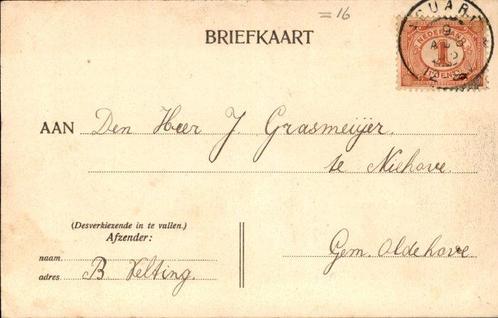 =16
BRIEFKAART
NEDERLAND
1
AAN Den Heer J. Grasmeijer.
te Niehove.
(Desverkiezende in te vullen.)
Afzender:
naam
adres B Velting.
Gem. Oldehove.